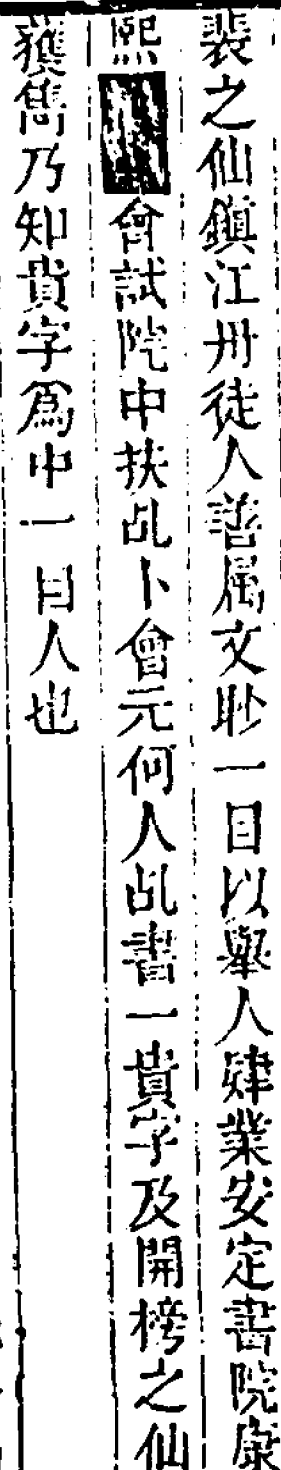 裴之仙鎭江丹徒人善属文眇一目以舉人肄業安定書院康
熙會試院中扶乩卜會元何人乩書一貴字及開榜之仙
獲雋乃知貴字爲中一目人也